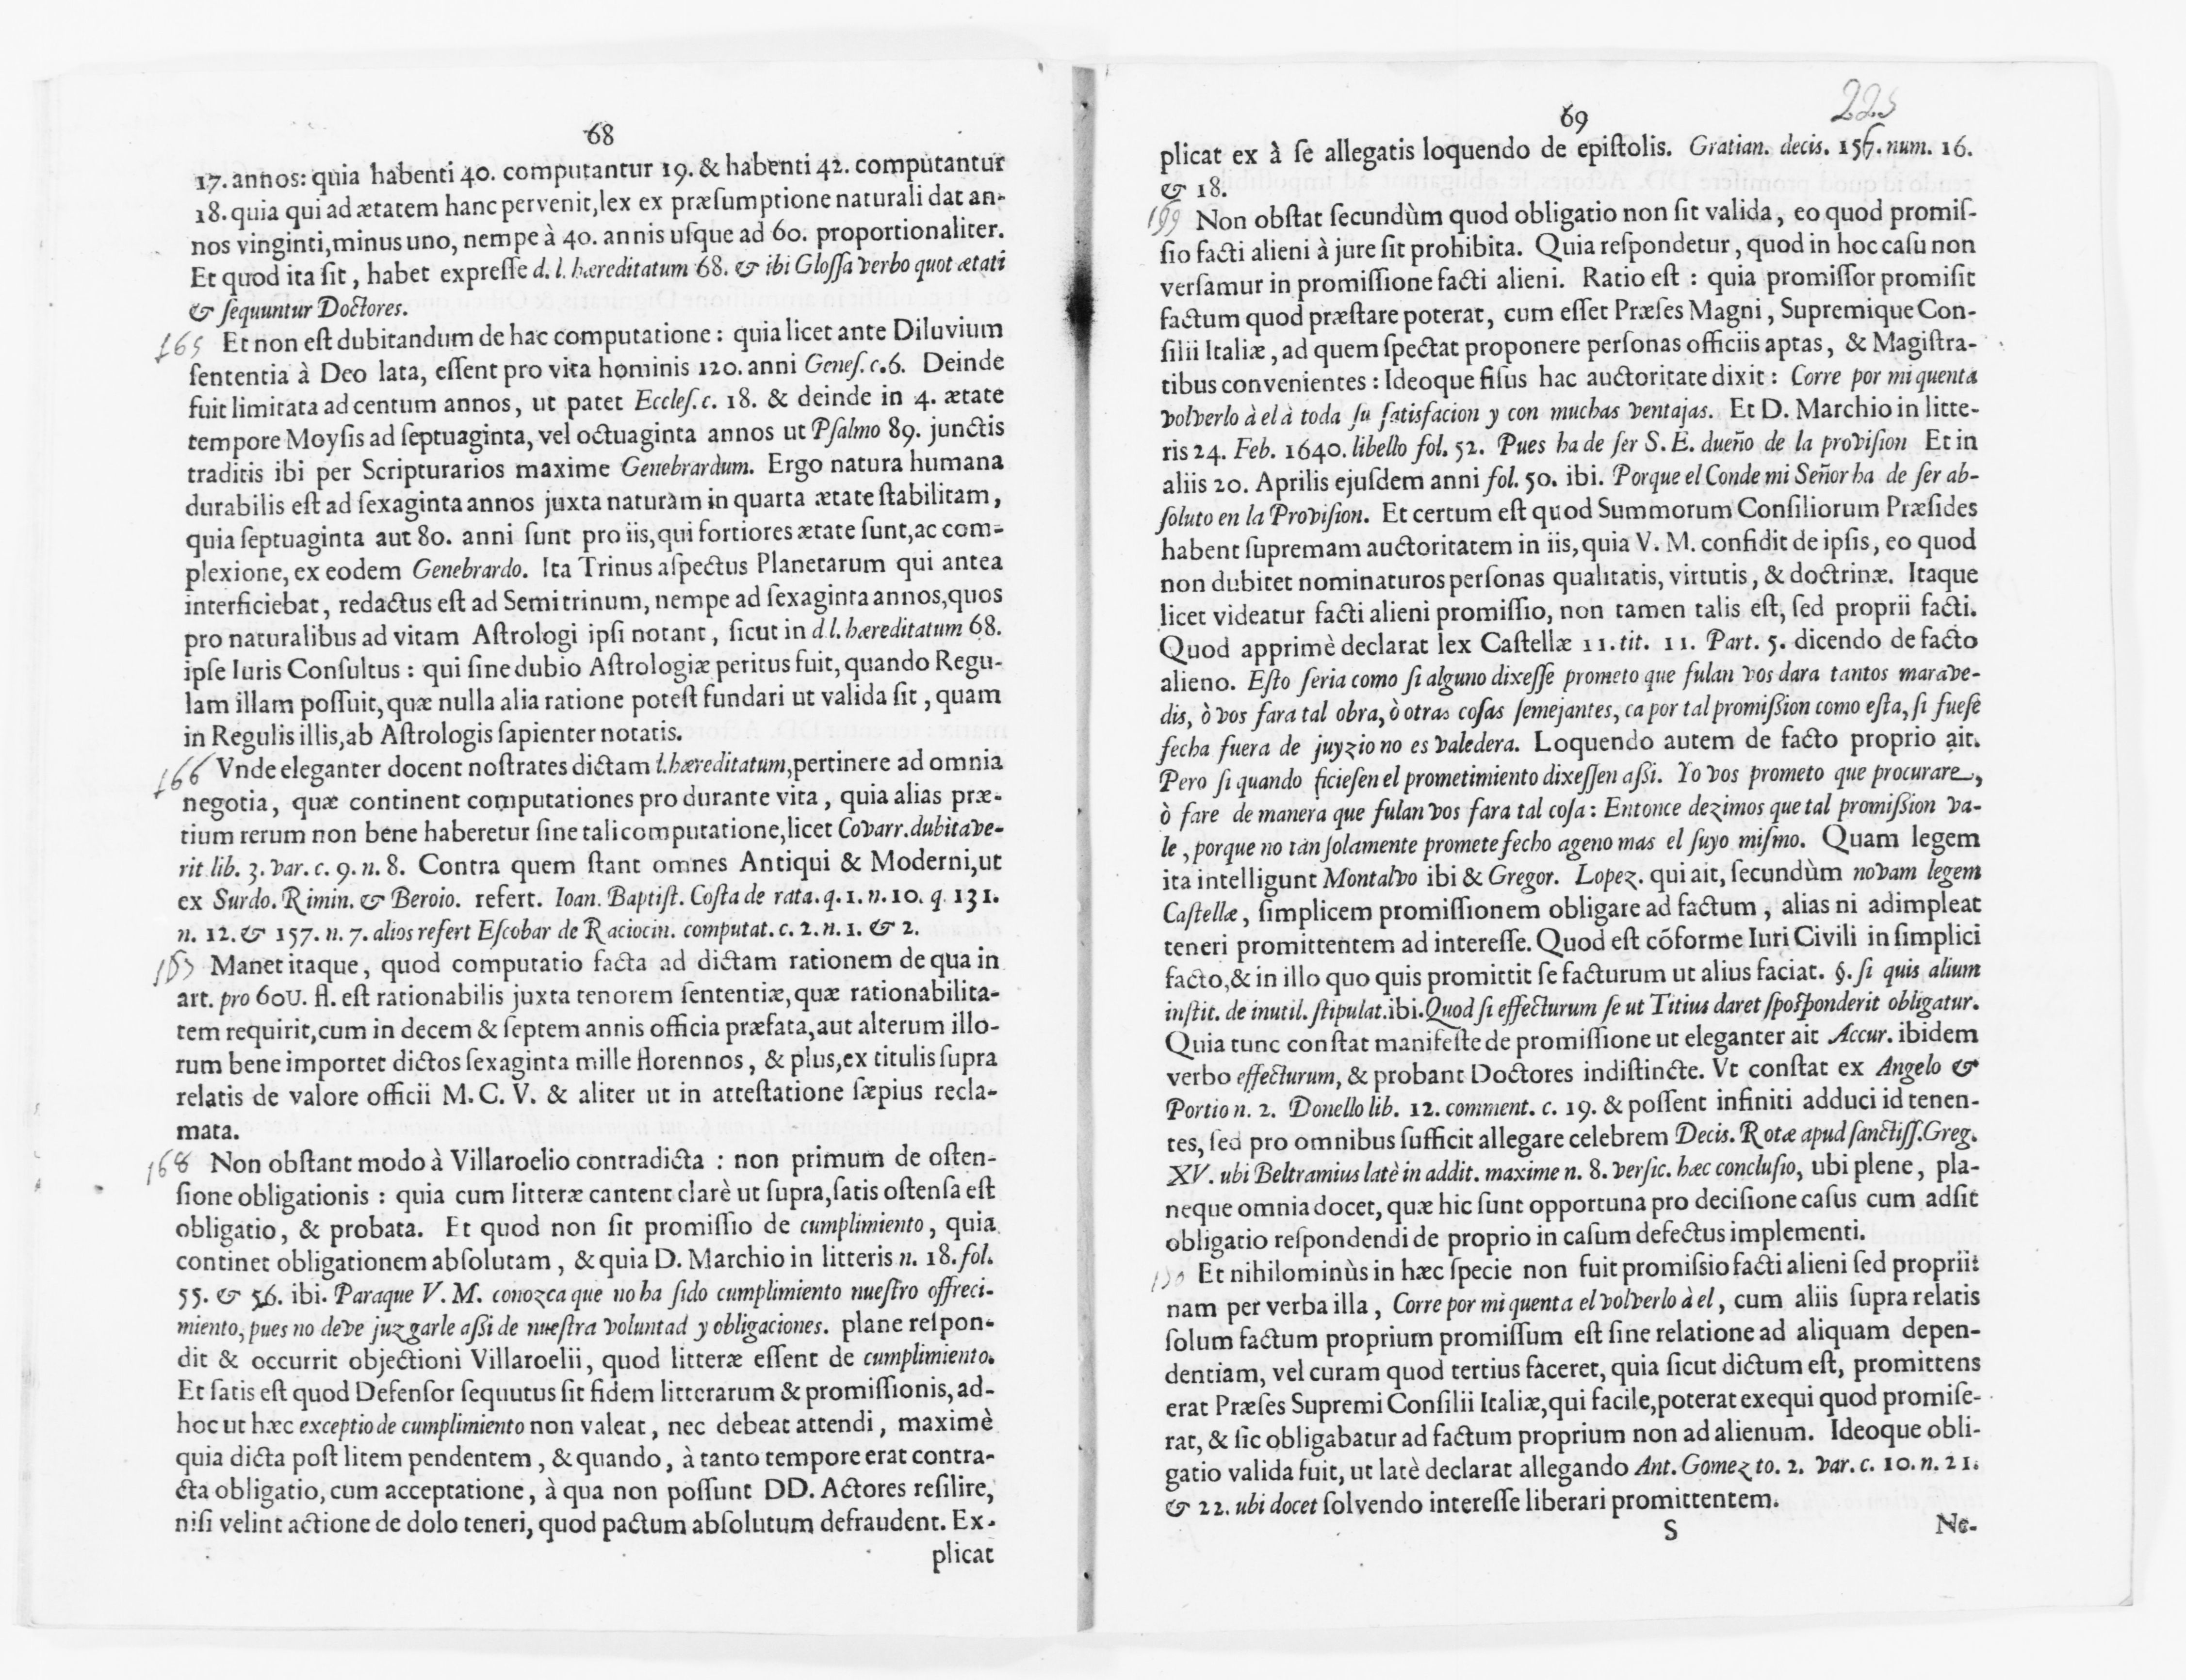 68
17. annos: quia habenti 40. computantur 19. & habenti 42. computantur
18. quia qui ad ætatem hanc pervenit, lex ex præsumptione naturali dat an-
nos vinginti, minus uno, nempe à 40. annis usque ad 60. proportionaliter.
Et quod ita sit, habet expressè d. l. hæreditatum 68. & ibi Glossa verbo quot ætati
& sequuntur Doctores.
165 Et non est dubitandum de hac computatione: quia licet ante Diluvium
sententia à Deo lata, essent pro vita hominis 120. anni Genes. c. 6. Deinde
fuit limitata ad centum annos, ut patet Eccles. c. 18. & deinde in 4. ætate
tempore Moysis ad septuaginta, vel octuaginta annos ut Psalmo 89. junctis
traditis ibi per Scripturarios maxime Genebrardum. Ergo natura humana
durabilis est ad sexaginta annos juxta naturàm in quarta ætate stabilitam,
quia septuaginta aut 80. anni sunt pro iis, qui fortiores ætate sunt, ac com-
plexione, ex eodem Genebrardo. Ita Trinus aspectus Planetarum qui antea
interficiebat, redactus est ad Semitrinum, nempe ad sexaginta annos, quos
pro naturalibus ad vitam Astrologi ipsi notant, sicut in d. l. hæreditatum 68.
ipse Iuris Consultus: qui sine dubio Astrologiæ peritus fuit, quando Regu-
lam illam possuit, quæ nulla alia ratione potest fundari ut valida sit, quam
in Regulis illis, ab Astrologis sapienter notatis.
166 Vnde eleganter docent nostrates dictam l. hæreditatum, pertinere ad omnia
negotia, quæ continent computationes pro durante vita, quia alias præ-
tium rerum non bene haberetur sine tali computatione, licet Covarr. dubitave-
rit lib. 3. var. c. 9. n. 8. Contra quem stant omnes Antiqui & Moderni, ut
ex Surdo. Rimin. & Beroio. refert. Ioan. Baptist. Costa de rata. q. 1. n. 10. q. 131.
n. 12. & 157. n. 7. alios refert Escobar de Raciocin. computat. c. 2. n. 1. & 2.
167 Manet itaque, quod computatio facta ad dictam rationem de qua in
art. pro 60U. fl. est rationabilis juxta tenorem sententiæ, quæ rationabilita-
tem requirit, cum in decem & septem annis officia præfata, aut alterum illo-
rum bene importet dictos sexaginta mille florennos, & plus, ex titulis supra
relatis de valore officii M. C. V. & aliter ut in attestatione sæpius recla-
mata.
168 Non obstant modo à Villaroelio contradicta: non primum de osten-
sione obligationis: quia cum litteræ cantent clarè ut supra, satis ostensa est
obligatio, & probata. Et quod non sit promissio de cumplimiento, quia
continet obligationem absolutam, & quia D. Marchio in litteris n. 18. fol.
55. & 56. ibi. Paraque V. M. conozca que no ha sido cumplimiento nuestro offreci-
miento, pues no deve juzgarle assi de nuestra voluntad y obligaciones. plane respon-
dit & occurrit objectioni Villaroelii, quod litteræ essent de cumplimiento.
Et satis est quod Defensor sequutus sit fidem litterarum & promissionis, ad-
hoc ut hæc exceptio de cumplimiento non valeat, nec debeat attendi, maximè
quia dicta post litem pendentem, & quando, à tanto tempore erat contra-
cta obligatio, cum acceptatione, à qua non possunt DD. Actores resilire,
nisi velint actione de dolo teneri, quod pactum absolutum defraudent. Ex-
plicat
225
69
plicat ex à se allegatis loquendo de epistolis. Gratian. decis. 156. num. 16.
& 18.
169 Non obstat secundùm quod obligatio non sit valida, eo quod promis-
sio facti alieni à jure sit prohibita. Quia respondetur, quod in hoc casu non
versamur in promissione facti alieni. Ratio est: quia promissor promisit
factum quod præstare poterat, cum esset Præses Magni, Supremique Con-
silii Italiæ, ad quem spectat proponere personas officiis aptas, & Magistra-
tibus convenientes: Ideoque fisus hac auctoritate dixit: Corre por mi quenta
volverlo à el à toda su satisfacion y con muchas ventajas. Et D. Marchio in litte-
ris 24. Feb. 1640. libello fol. 52. Pues ha de ser S. E. dueño de la provision Et in
aliis 20. Aprilis ejusdem anni fol. 50. ibi. Porque el Conde mi Señor ha de ser ab-
soluto en la Provision. Et certum est quod Summorum Consiliorum Præsides
habent supremam auctoritatem in iis, quia V. M. confidit de ipsis, eo quod
non dubitet nominaturos personas qualitatis, virtutis, & doctrinæ. Itaque
licet videatur facti alieni promissio, non tamen talis est, sed proprii facti.
Quod apprimè declarat lex Castellæ 11. tit. 11. Part. 5. dicendo de facto
alieno. Esto seria como si alguno dixesse prometo que fulan vos dara tantos marave-
dis, ò vos fara tal obra, ò otras cosas semejantes, ca por tal promission como esta, si fuese
fecha fuera de juyzio no es valedera. Loquendo autem de facto proprio ait.
Pero si quando ficiesen el prometimiento dixessen assi. Yo vos prometo que procurare,
ò fare de manera que fulan vos fara tal cosa: Entonce dezimos que tal promission va-
le, porque no tan solamente promete fecho ageno mas el suyo mismo. Quam legem
ita intelligunt Montalvo ibi & Gregor. Lopez. qui ait, secundùm novam legem
Castellæ, simplicem promissionem obligare ad factum, alias ni adimpleat
teneri promittentem ad interesse. Quod est cõforme Iuri Civili in simplici
facto, & in illo quo quis promittit se facturum ut alius faciat. §. si quis alium
instit. de inutil. stipulat. ibi. Quod si effecturum se ut Titius daret sposponderit obligatur.
Quia tunc constat manifeste de promissione ut eleganter ait Accur. ibidem
verbo effecturum, & probant Doctores indistincte. Vt constat ex Angelo &
Portio n. 2. Donello lib. 12. comment. c. 19. & possent infiniti adduci id tenen-
tes, sed pro omnibus sufficit allegare celebrem Decis. Rotæ apud sanctiss. Greg.
XV. ubi Beltramius latè in addit. maxime n. 8. versic. hæc conclusio, ubi plene, pla-
neque omnia docet, quæ hic sunt opportuna pro decisione casus cum adsit
obligatio respondendi de proprio in casum defectus implementi.
170 Et nihilominùs in hæc specie non fuit promissio facti alieni sed proprii:
nam per verba illa, Corre por mi quenta el volverlo à el, cum aliis supra relatis
solum factum proprium promissum est sine relatione ad aliquam depen-
dentiam, vel curam quod tertius faceret, quia sicut dictum est, promittens
erat Præses Supremi Consilii Italiæ, qui facile, poterat exequi quod promise-
rat, & sic obligabatur ad factum proprium non ad alienum. Ideoque obli-
gatio valida fuit, ut latè declarat allegando Ant. Gomez to. 2. var. c. 10. n. 21.
& 22. ubi docet solvendo interesse liberari promittentem.
S
Ne-